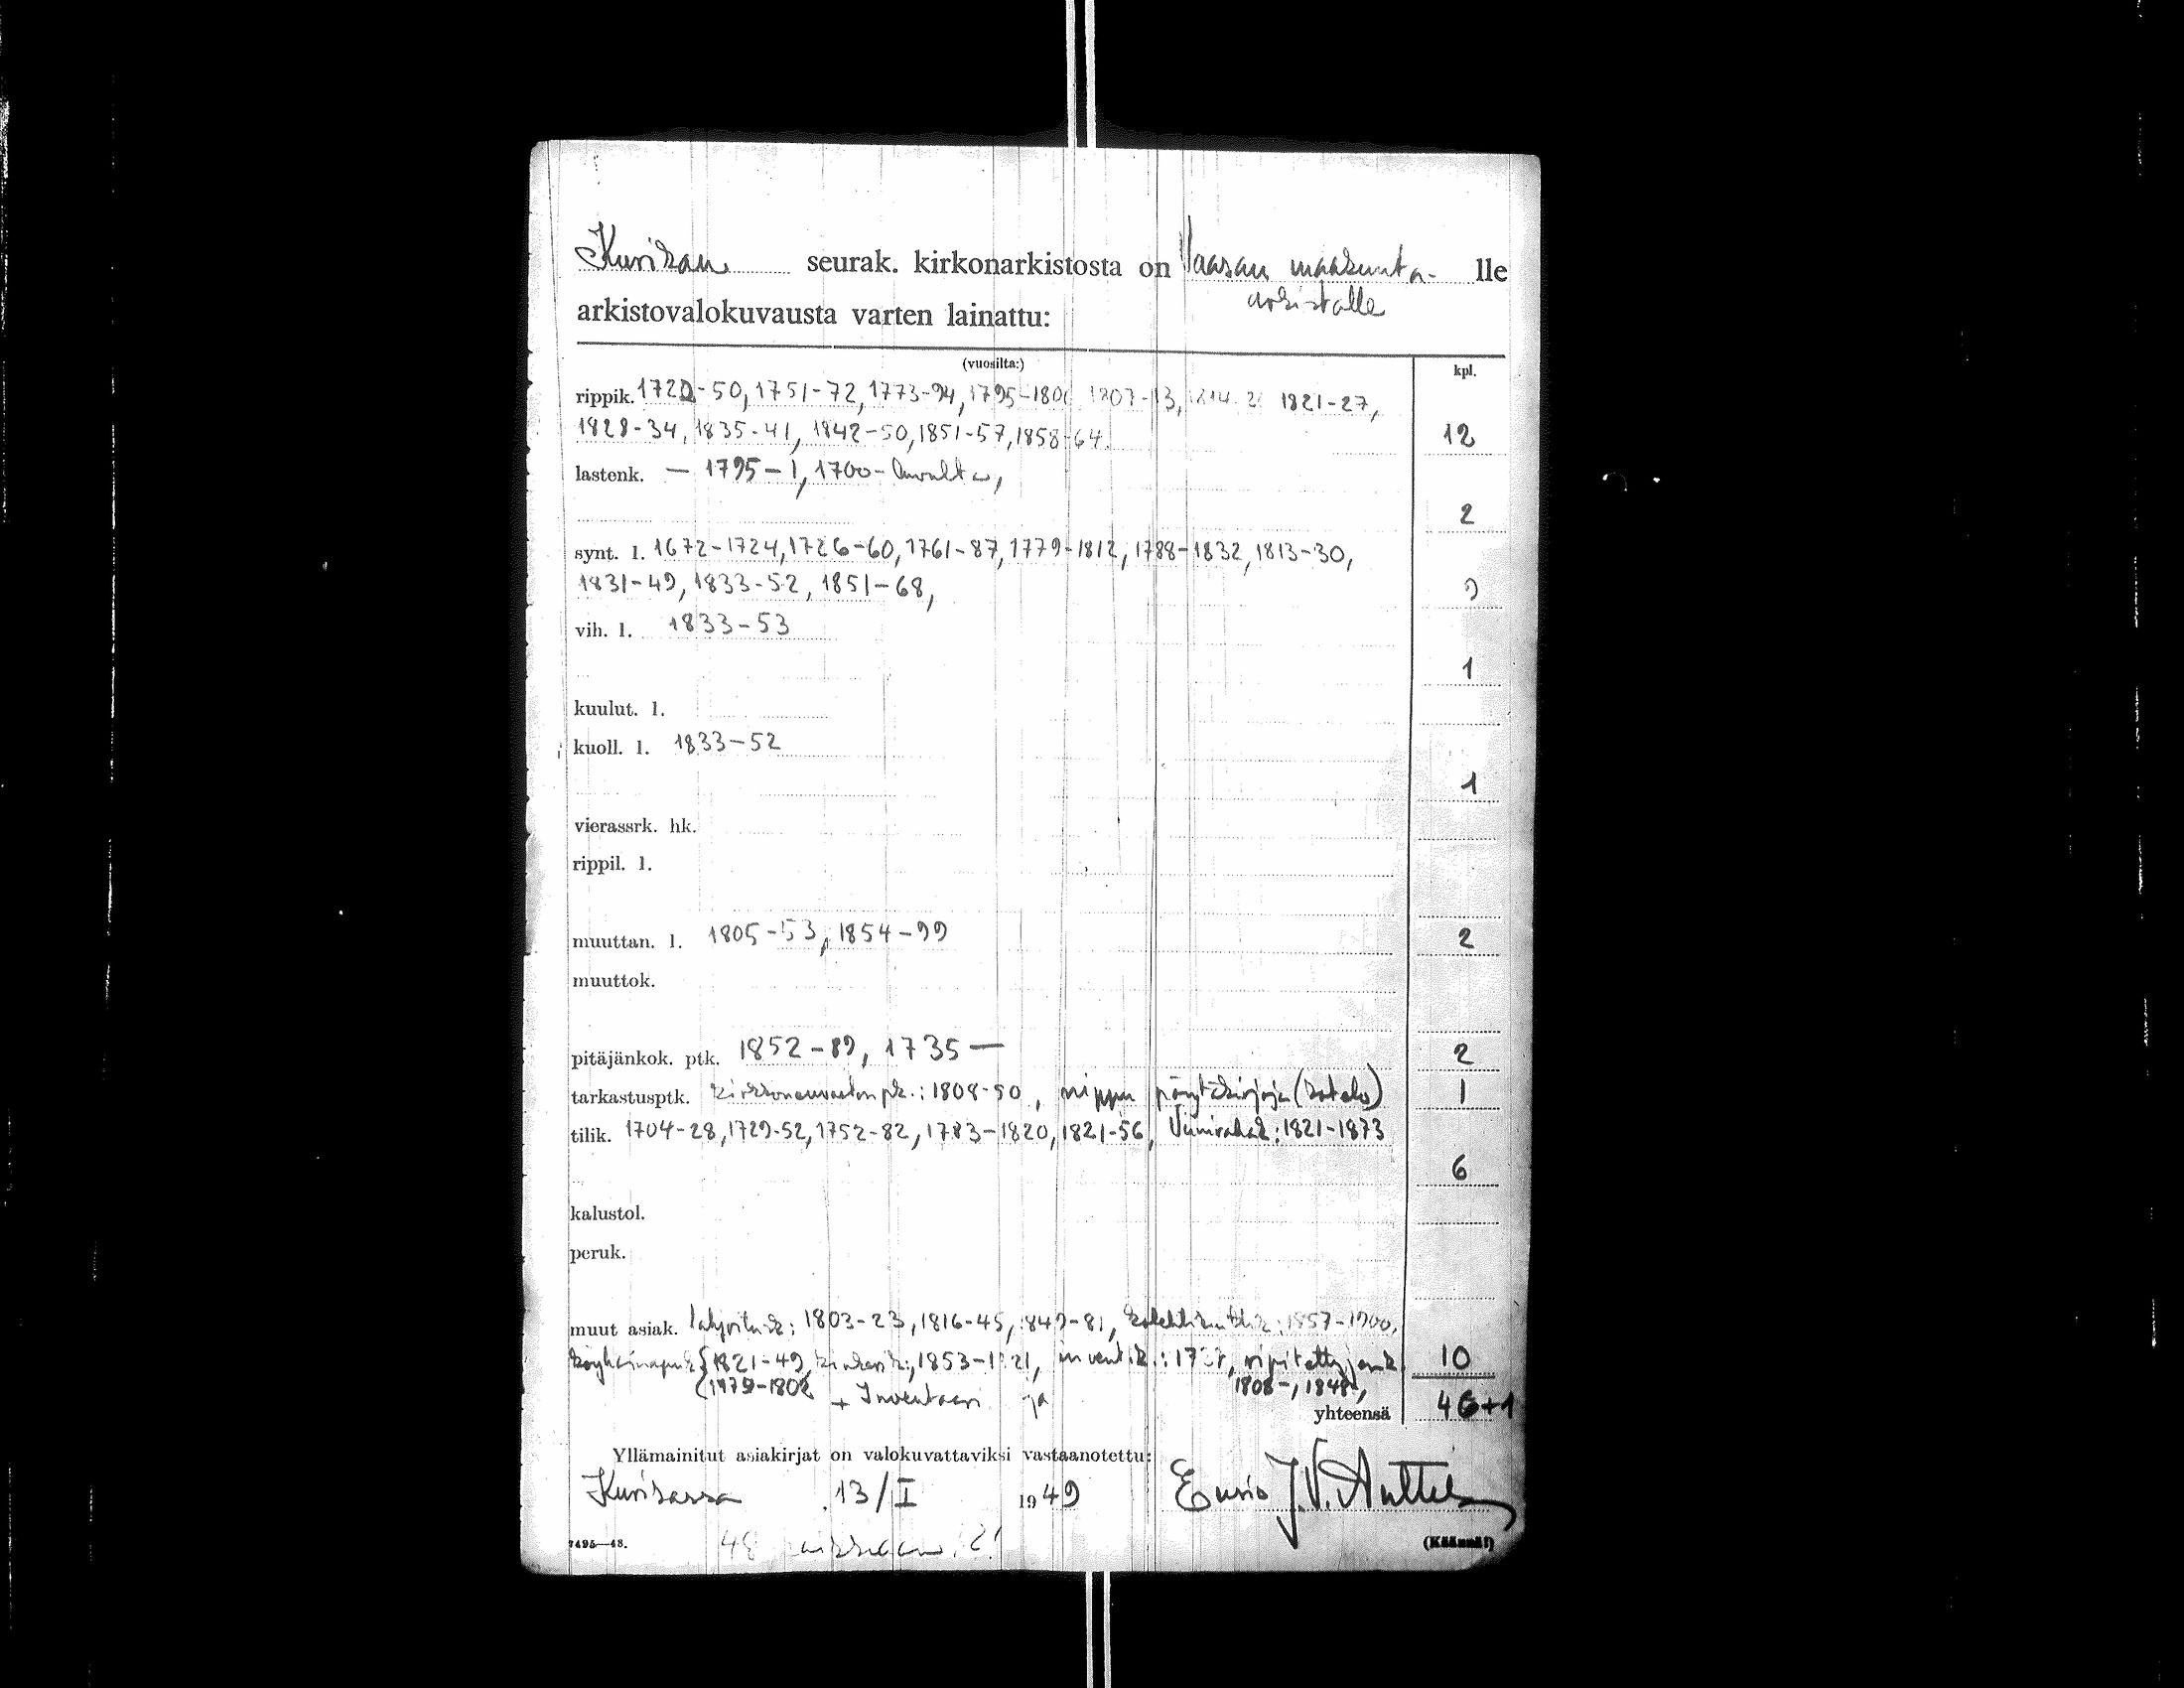 Kurikan seurak. kirkonarkistosta on Vaasan maakunta- lle
arkistolle
arkistovalokuvausta varten lainattu:
(vuosilta:) kpl.
rippik. 1720-50, 1751-72, 1773-94, 1795-180 1807-13, 1821-27,
1828-34, 1835-41, 1842-50, 1851-57, 1858-64. 12
lastenk. — 1795-1, 1700-luvulta,
2
synt. l. 1672-1724, 1726-60, 1761-87, 1779-1812, 1788-1832, 1813-30,
1831-49, 1833-52, 1851-68, 9
vih. l. 1833-53
1
kuulut. l.
kuoll. l. 1833-52
1
vierassrk. hk.
rippil. l.
muuttan. l. 1805-53, 1854-99 2
muuttok.
pitäjänkok. ptk. 1852-89, 1735— 2
tarkastusptk. kirkkoneuvoston pk.: 1808-90, nippu pöytäkirjoja (kotelo) 1
tilik. 1704-28, 1729-52, 1752-82, 1783-1820, 1821-56, Viinirahak: 1821-1873
6
kalustol.
peruk.
muut asiak. 1803-23, 1816-45, 1849-81, 1857-1900,
1821-49, 1853- 10
-1802 + Inventaari ja 1808-, 1848,
yhteensä 46+1
Yllämainitut asiakirjat on valokuvattaviksi vastaanotettu:
Kurikassa 13/I 1949 Ensio J.V. Anttila
7495—48. 48 (Käännä!)